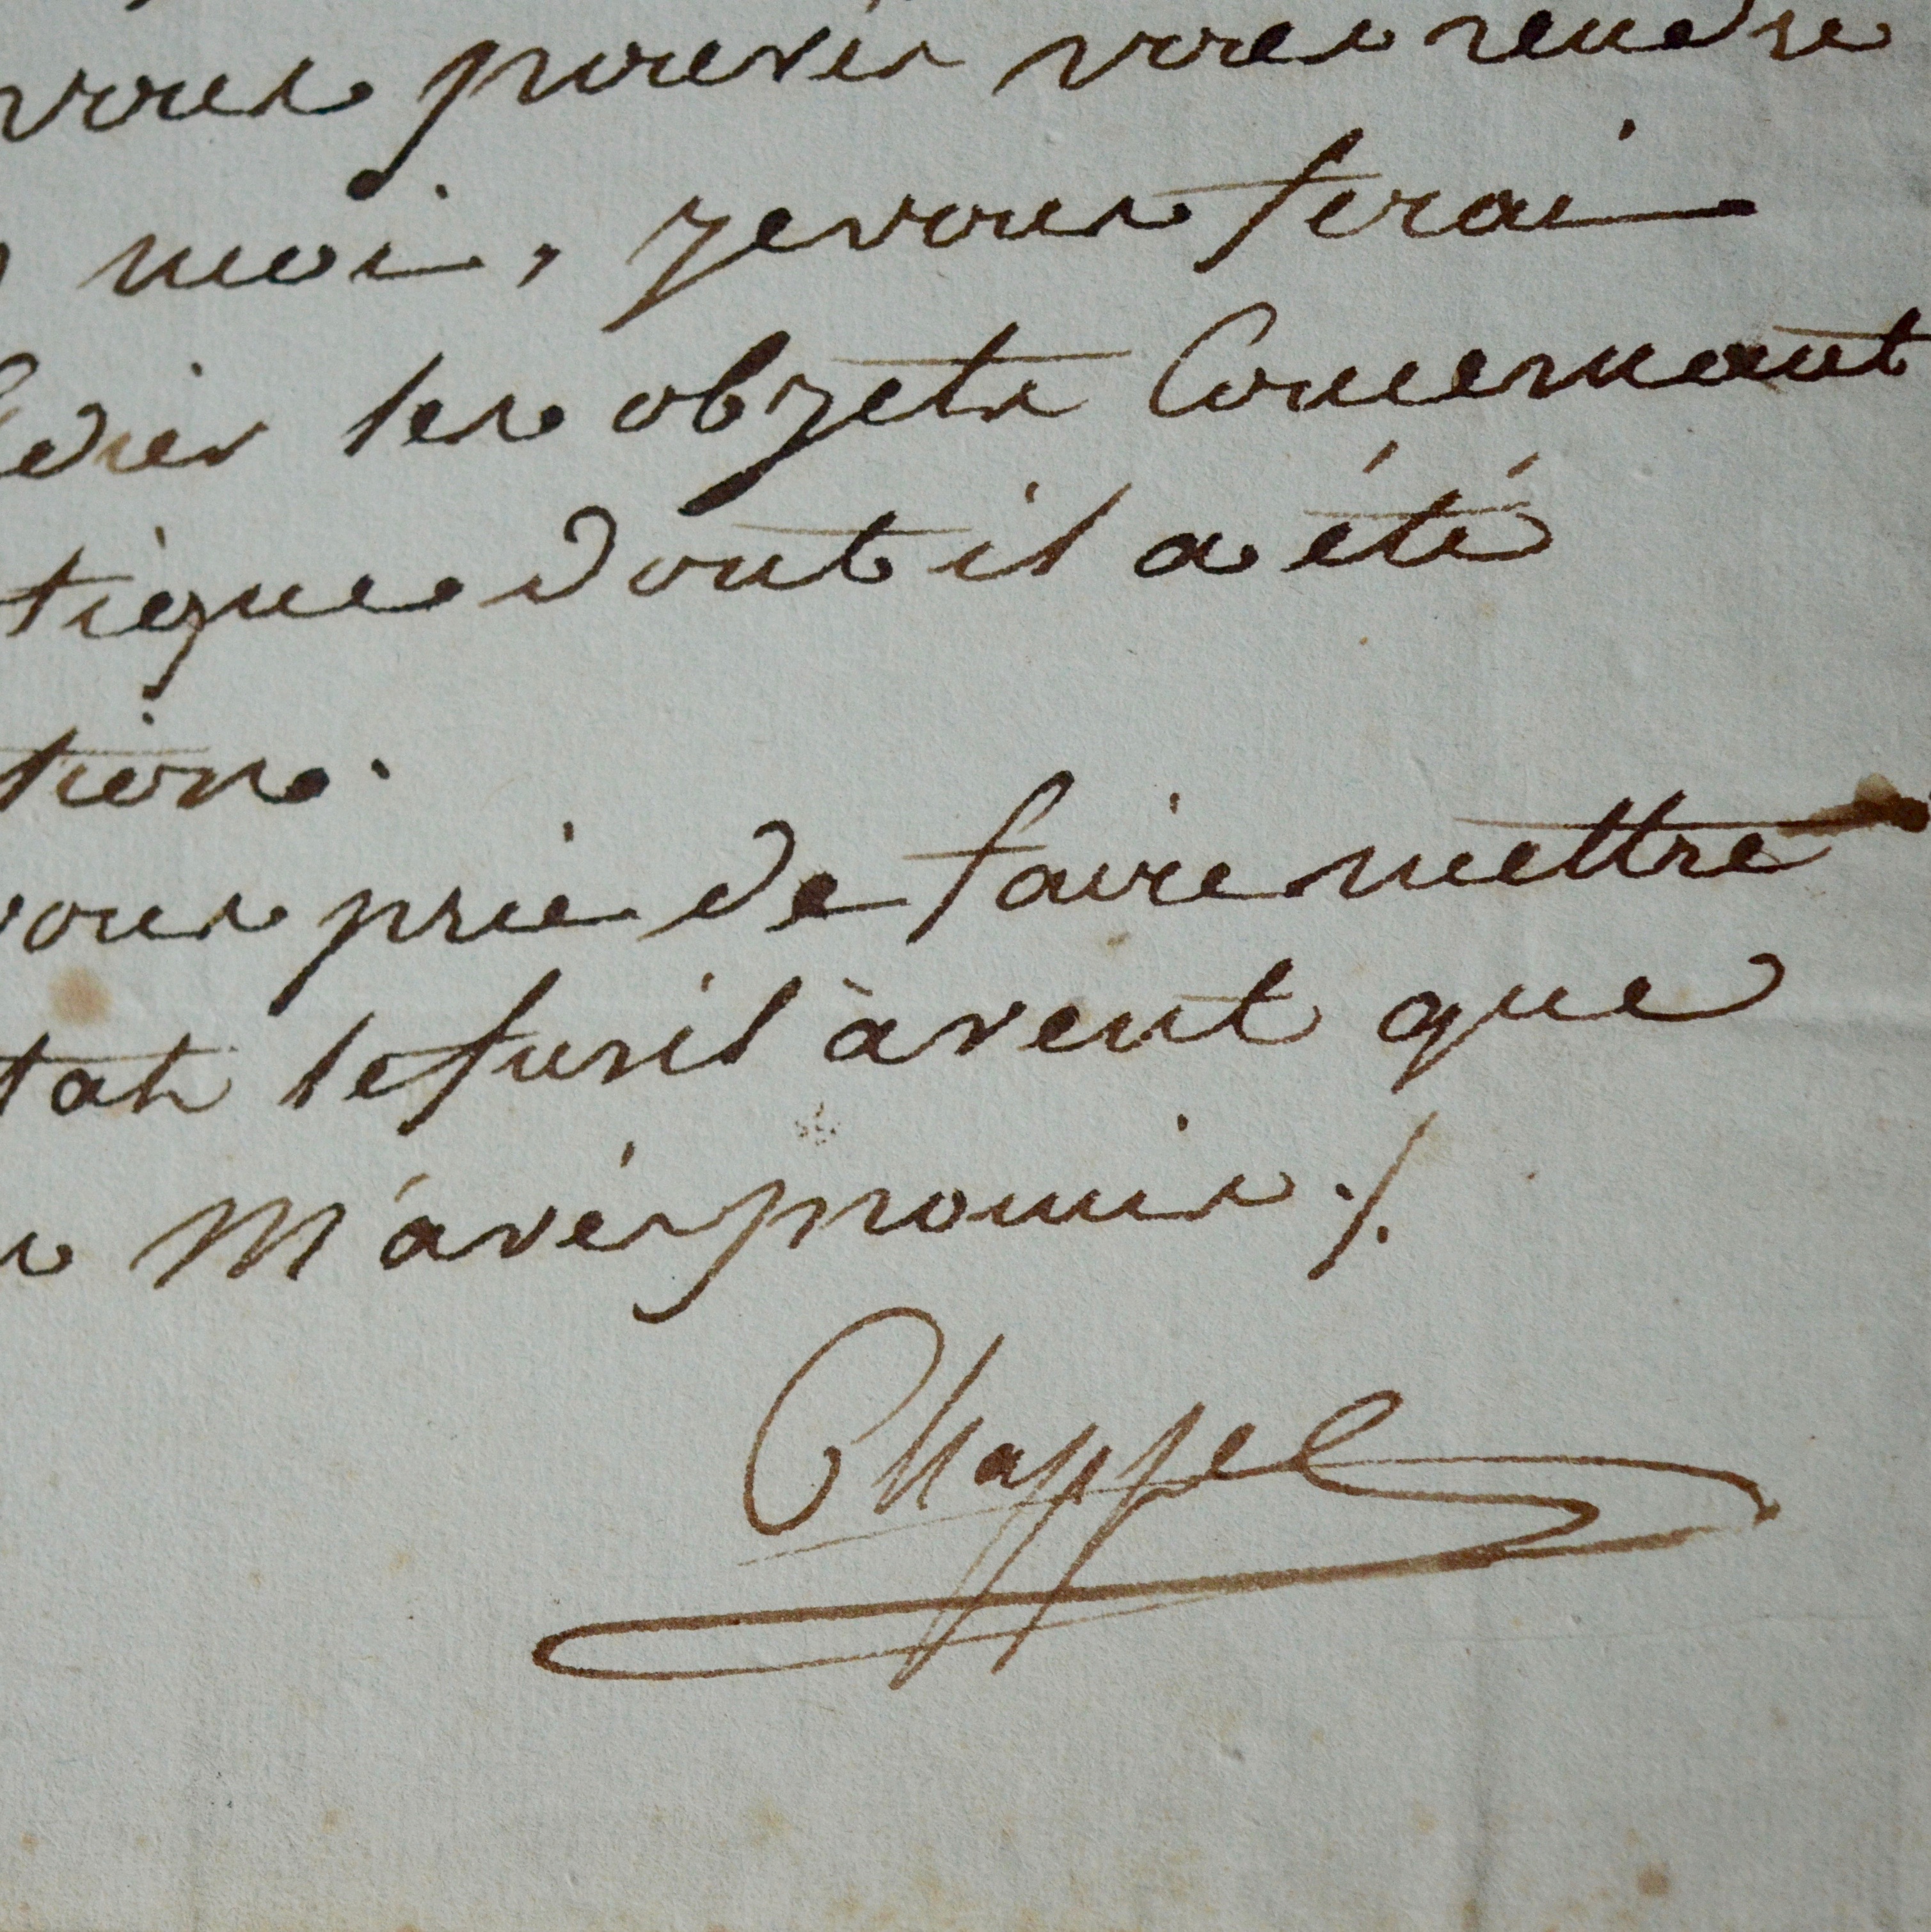 vous pouvés vous rendre
moi, je vous ferai
les objets Concernant
tique dont il a été
tion.
vous prie de faire mettre
tat le fusil àvent que
M'avés promis ./.
Chappel